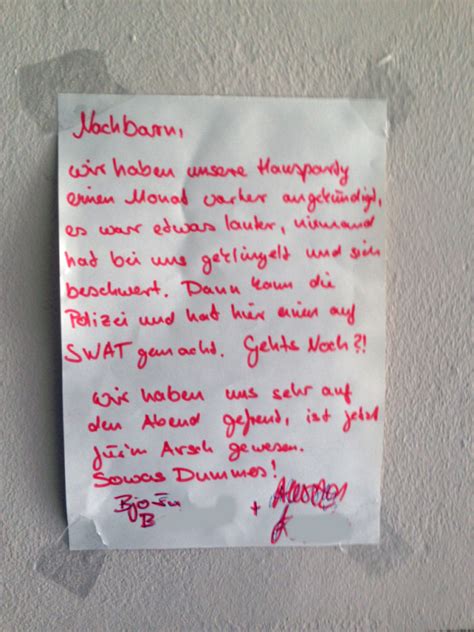 Nachbarn,
wir haben unsere Hausparty
einen Monat vorher angekündigt,
es war etwas lauter, niemand
hat bei uns geklingelt und sich
beschwert. Dann kam die
Polizei und hat hier einen auf
SWAT gemacht. Gehts Noch?!
Wir haben uns sehr auf
den Abend gefreut, ist jetzt
für'n Arsch gewesen.
Sowas Dummes!
Björn +
B